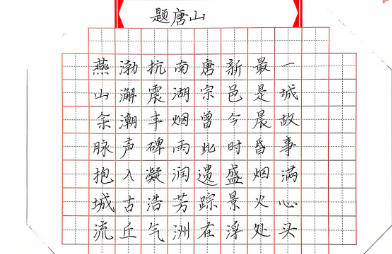 题唐山
燕山余脉抱城流
渤澥潮声入古丘
抗震丰碑凝浩气
南湖烟雨润芳洲
唐宗曾此遗踪在
新邑今时盛景浮
最是晨昏烟火处
一城故事满心头